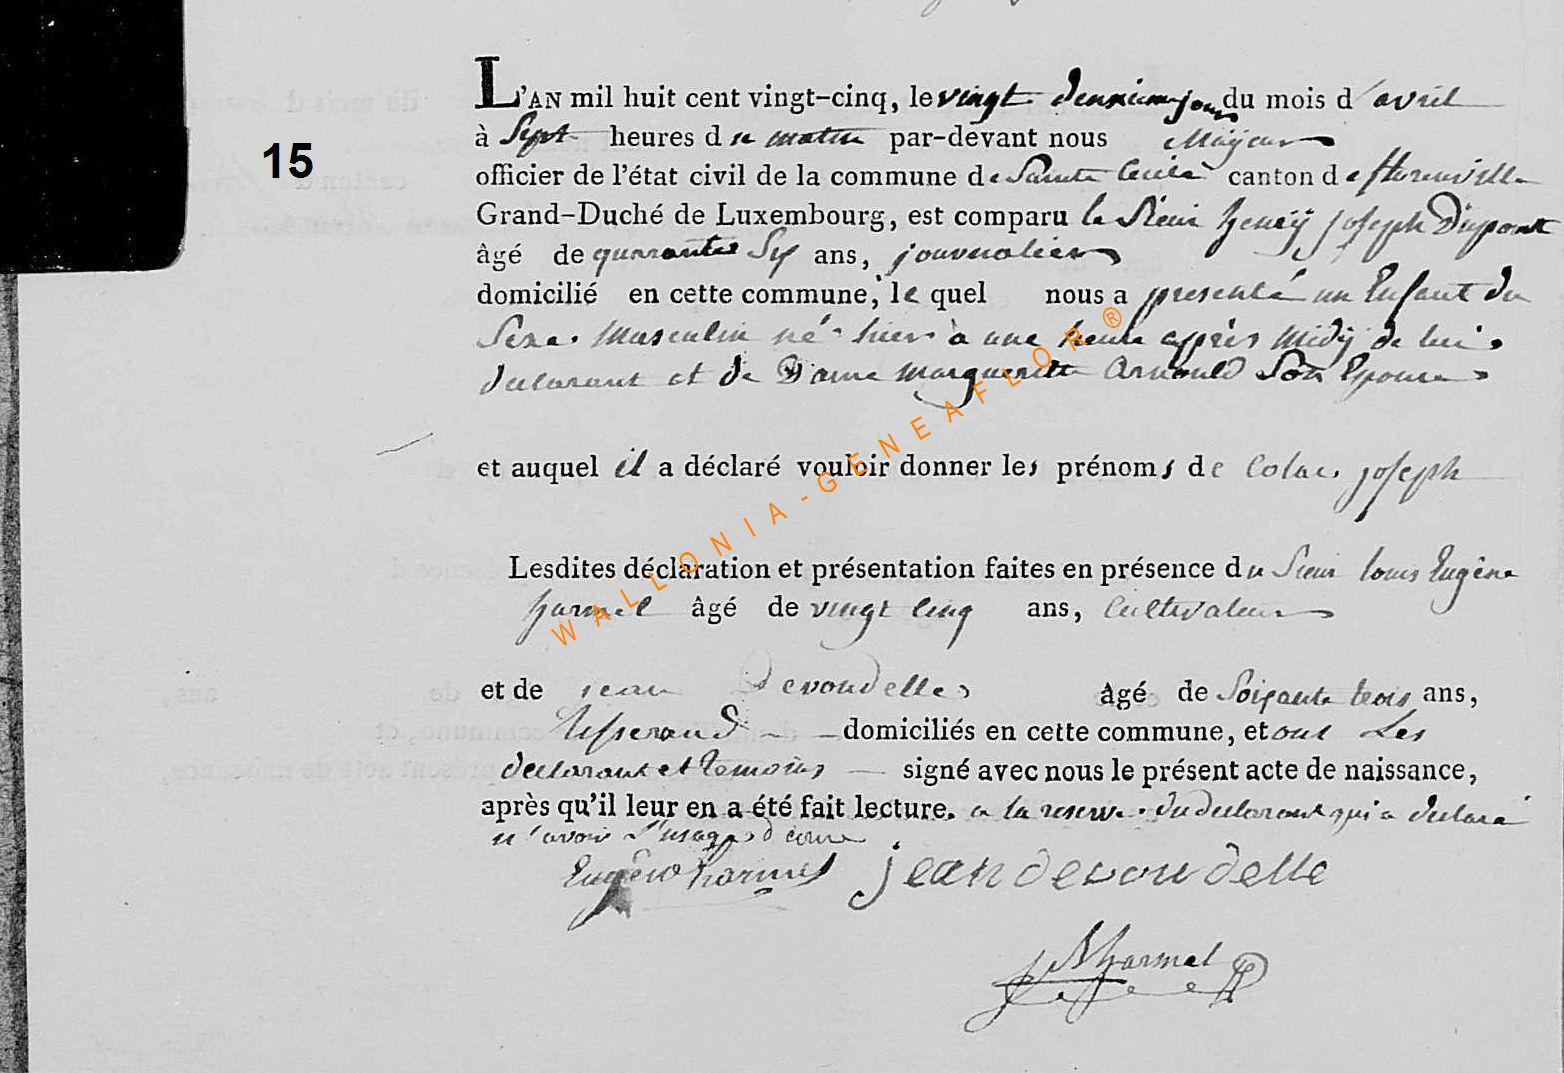 L'AN mil huit cent vingt-cinq, le vingt deuxieme jour du mois d'avril
15
à Sept heures du matin par-devant nous Mayeur
officier de l'état civil de la commune de Sainte Cecile canton de florenville
Grand-Duché de Luxembourg, est comparu le Sieur henry joseph Dupont
âgé de quarante Six ans, journalier
domicilié en cette commune, le quel nous a presenté un Enfant du
Sexe Masculin né hier à une heure après Midy de lui
declarant et de Dame Marguerite Arnould Son Epouse
et auquel il a déclaré vouloir donner les prénoms de Colas joseph
Lesdites déclaration et présentation faites en présence du Sieur louis Eugêne
harmel âgé de vingt Cinq ans, Cultivateur
et de jean Devoudelle âgé de Soixante trois ans,
tisserand domiciliés en cette commune, et ont Les
declarant et temoins signé avec nous le présent acte de naissance,
après qu'il leur en a été fait lecture. a la reserve du declarant qui a declaré
n'avoir l'usage d'ecrire
Eugêne harmel jean devoudelle
harmel
WALLONIA-GENEAFLOR ®